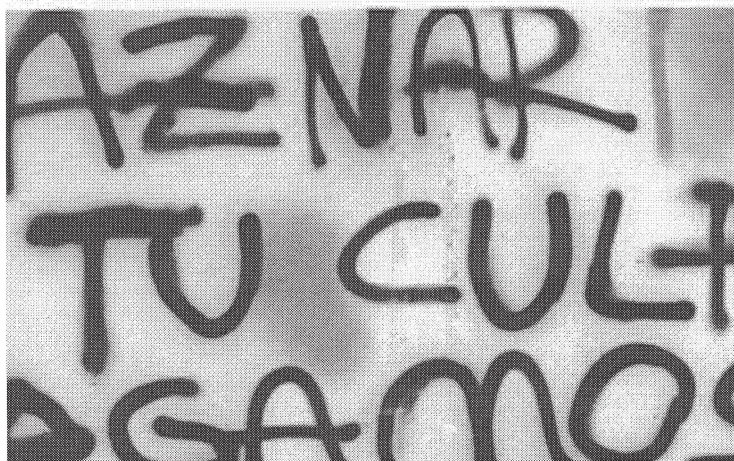 AZNAR
TU CULP
AGAMOS